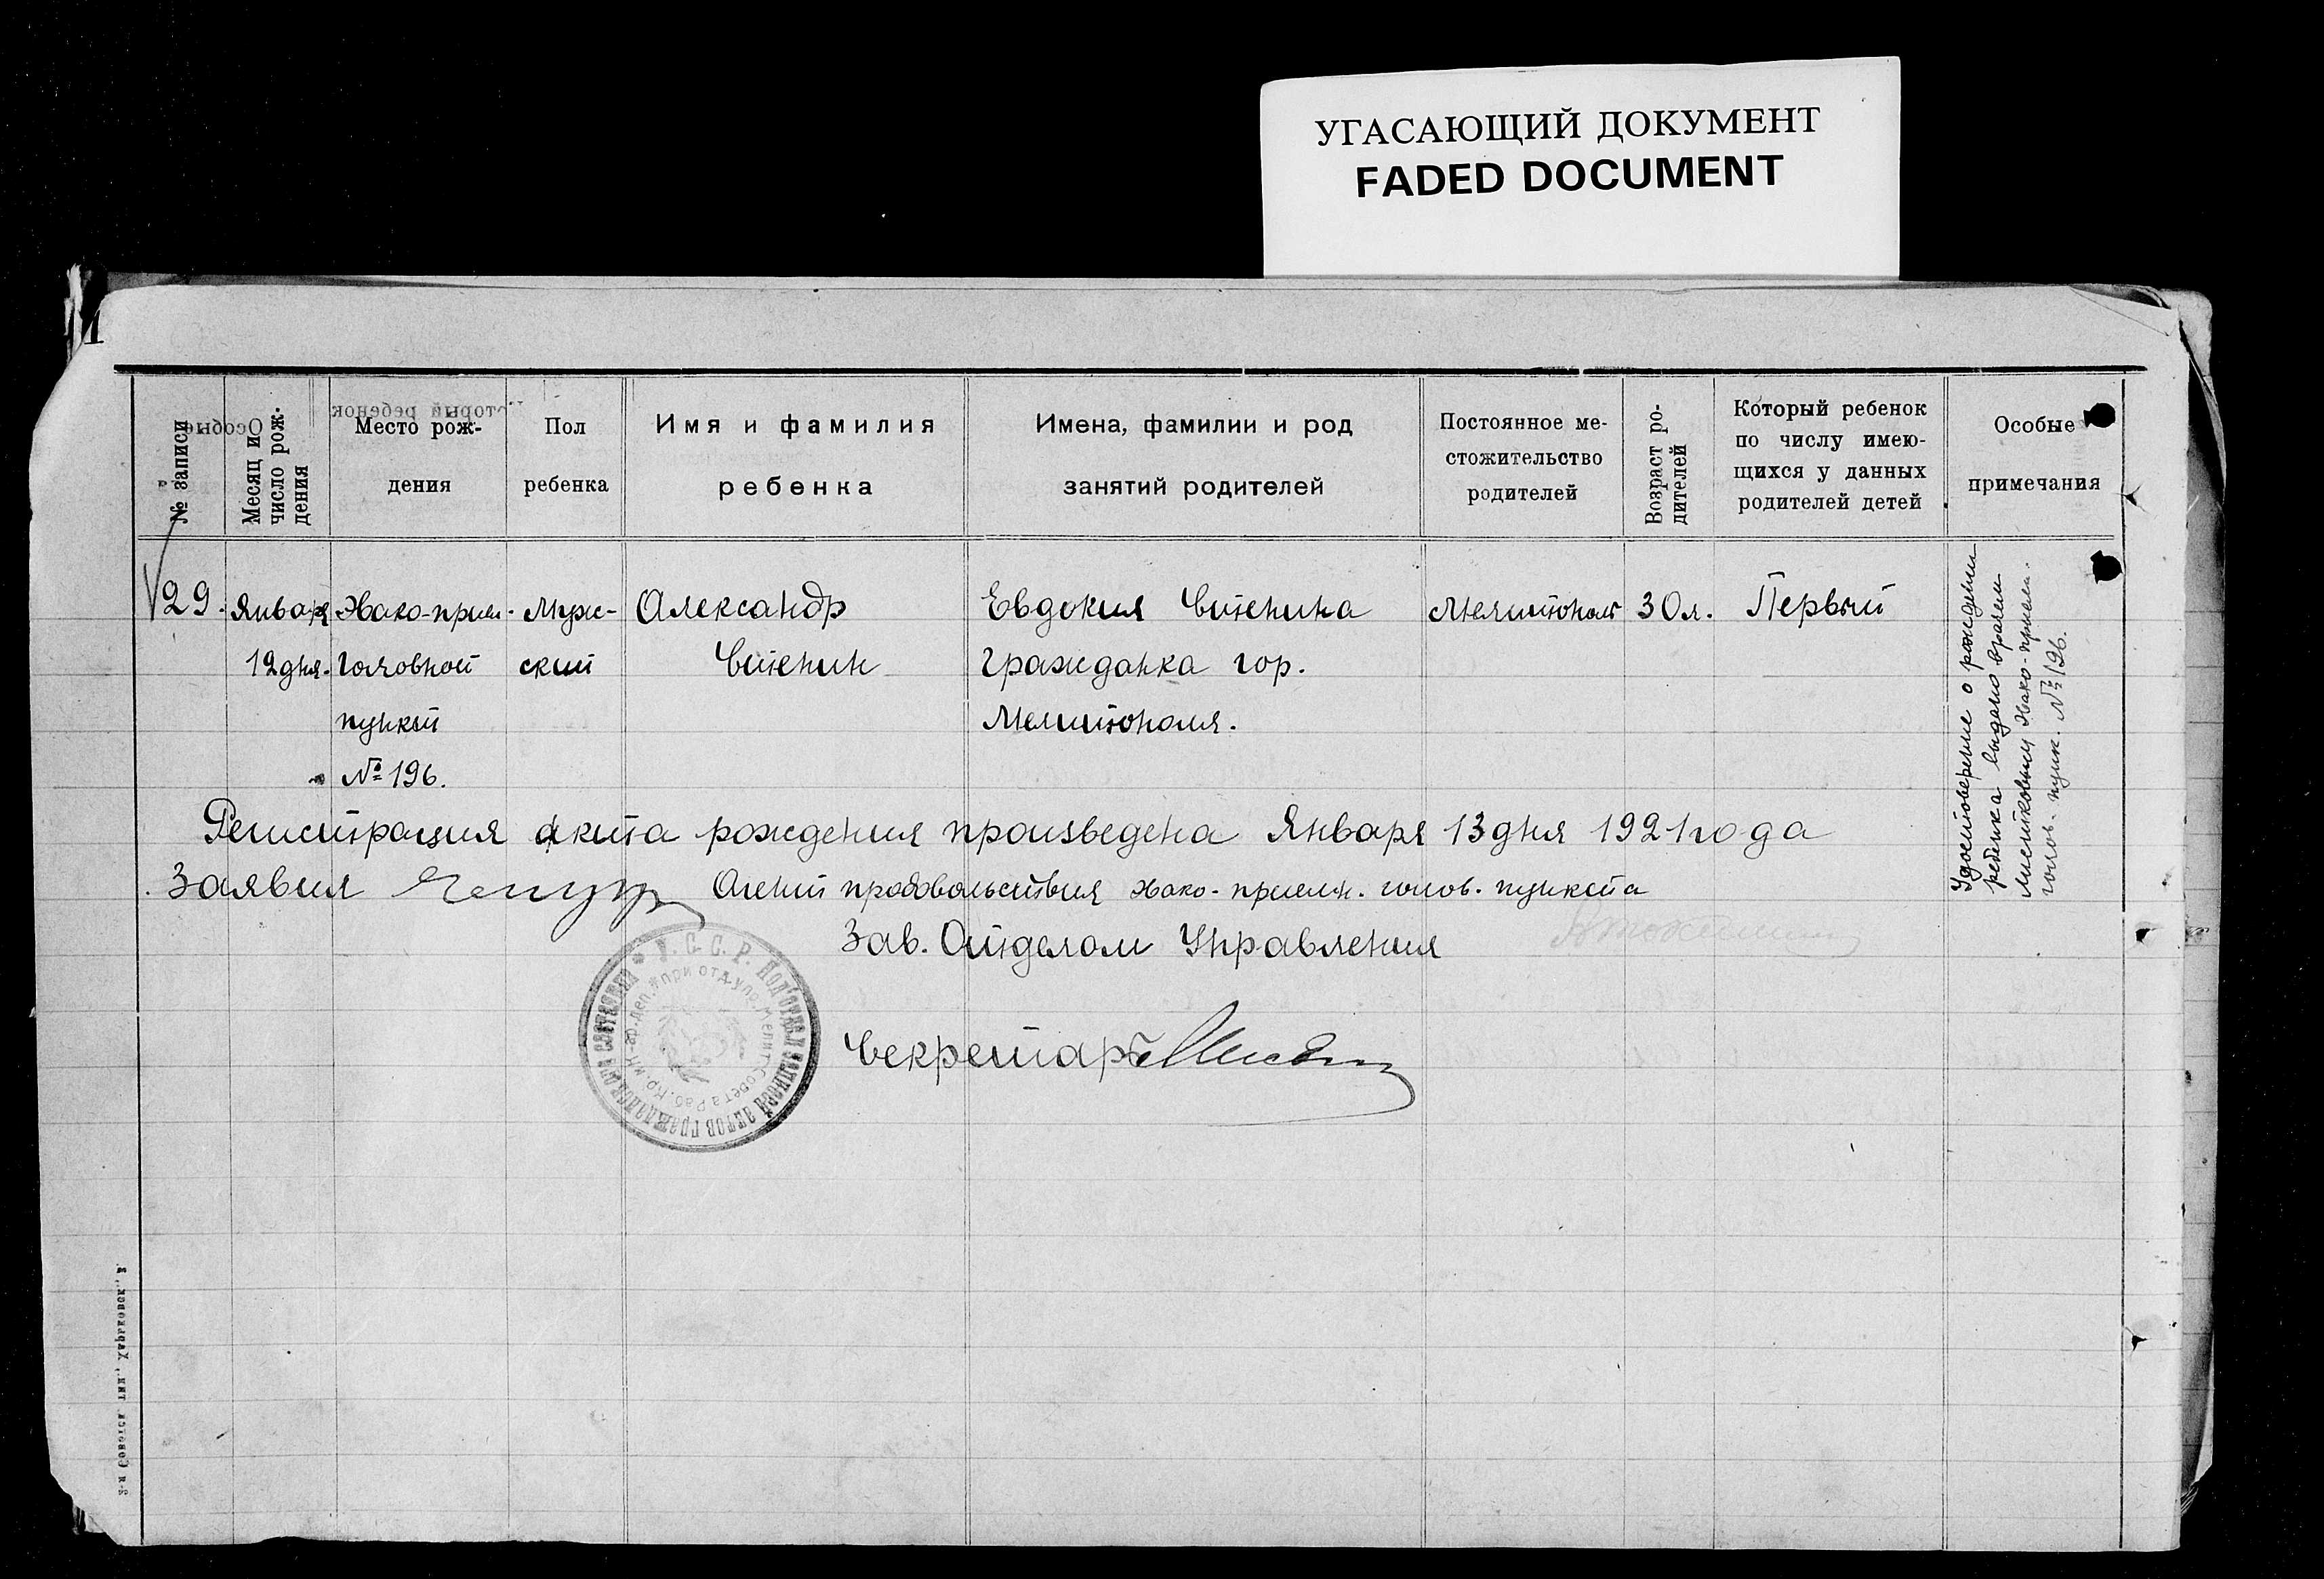 УГАСАЮЩИЙ ДОКУМЕНТ
FADED DOCUMENT
№ записи
Месяц и
число рож-
дения
Место рож-
дения
Пол
ребенка
Имя и фамилия
ребенка
Имена, фамилии и род
занятий родителей
Постоянное ме-
стожительство
родителей
Возраст ро-
дителей
Который ребенок
по числу имею-
щихся у данных
родителей детей
Особые
примечания
29.
Января
12 дня.
Эвако-прием.
Головной
пункт
№ 196.
Муж-
ской
Александр
Ситенин
Евдокия Ситенина
Гражданка гор.
Мелитополя.
Мелитополь
30 л.
Первый
Удостоверение о рождении
ребенка выдано врачем
Эвако-прием.
голов. пунк. № 196.
Регистрация акта рождения произведена Января 13 дня 1921 года
Заявил
Агент продовольствия эвако-приемн. голов. пункта
Зав. Отделом Управления
Секретарь
У.С.С.Р. Под'отдел записей актов гражданского состояния
при отд. Упр. Мелит. Совета Раб. Кр.